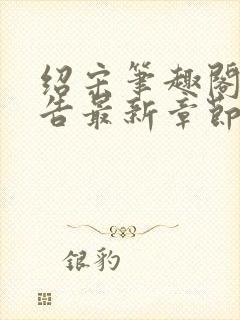 绍宋笔趣阁
告最新章节
银豹